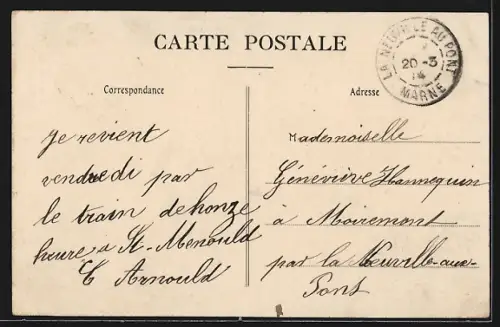 CARTE POSTALE
LA NEUVILLE AU PONT
20-3
14
MARNE
Correspondance
je revient
vendredi par
le train dehonze
heure a St-Menould
E Arnould
Adresse
Mademoiselle
Généviève Hannequin
à Moiremont
par la Neuville-aux-
Pont